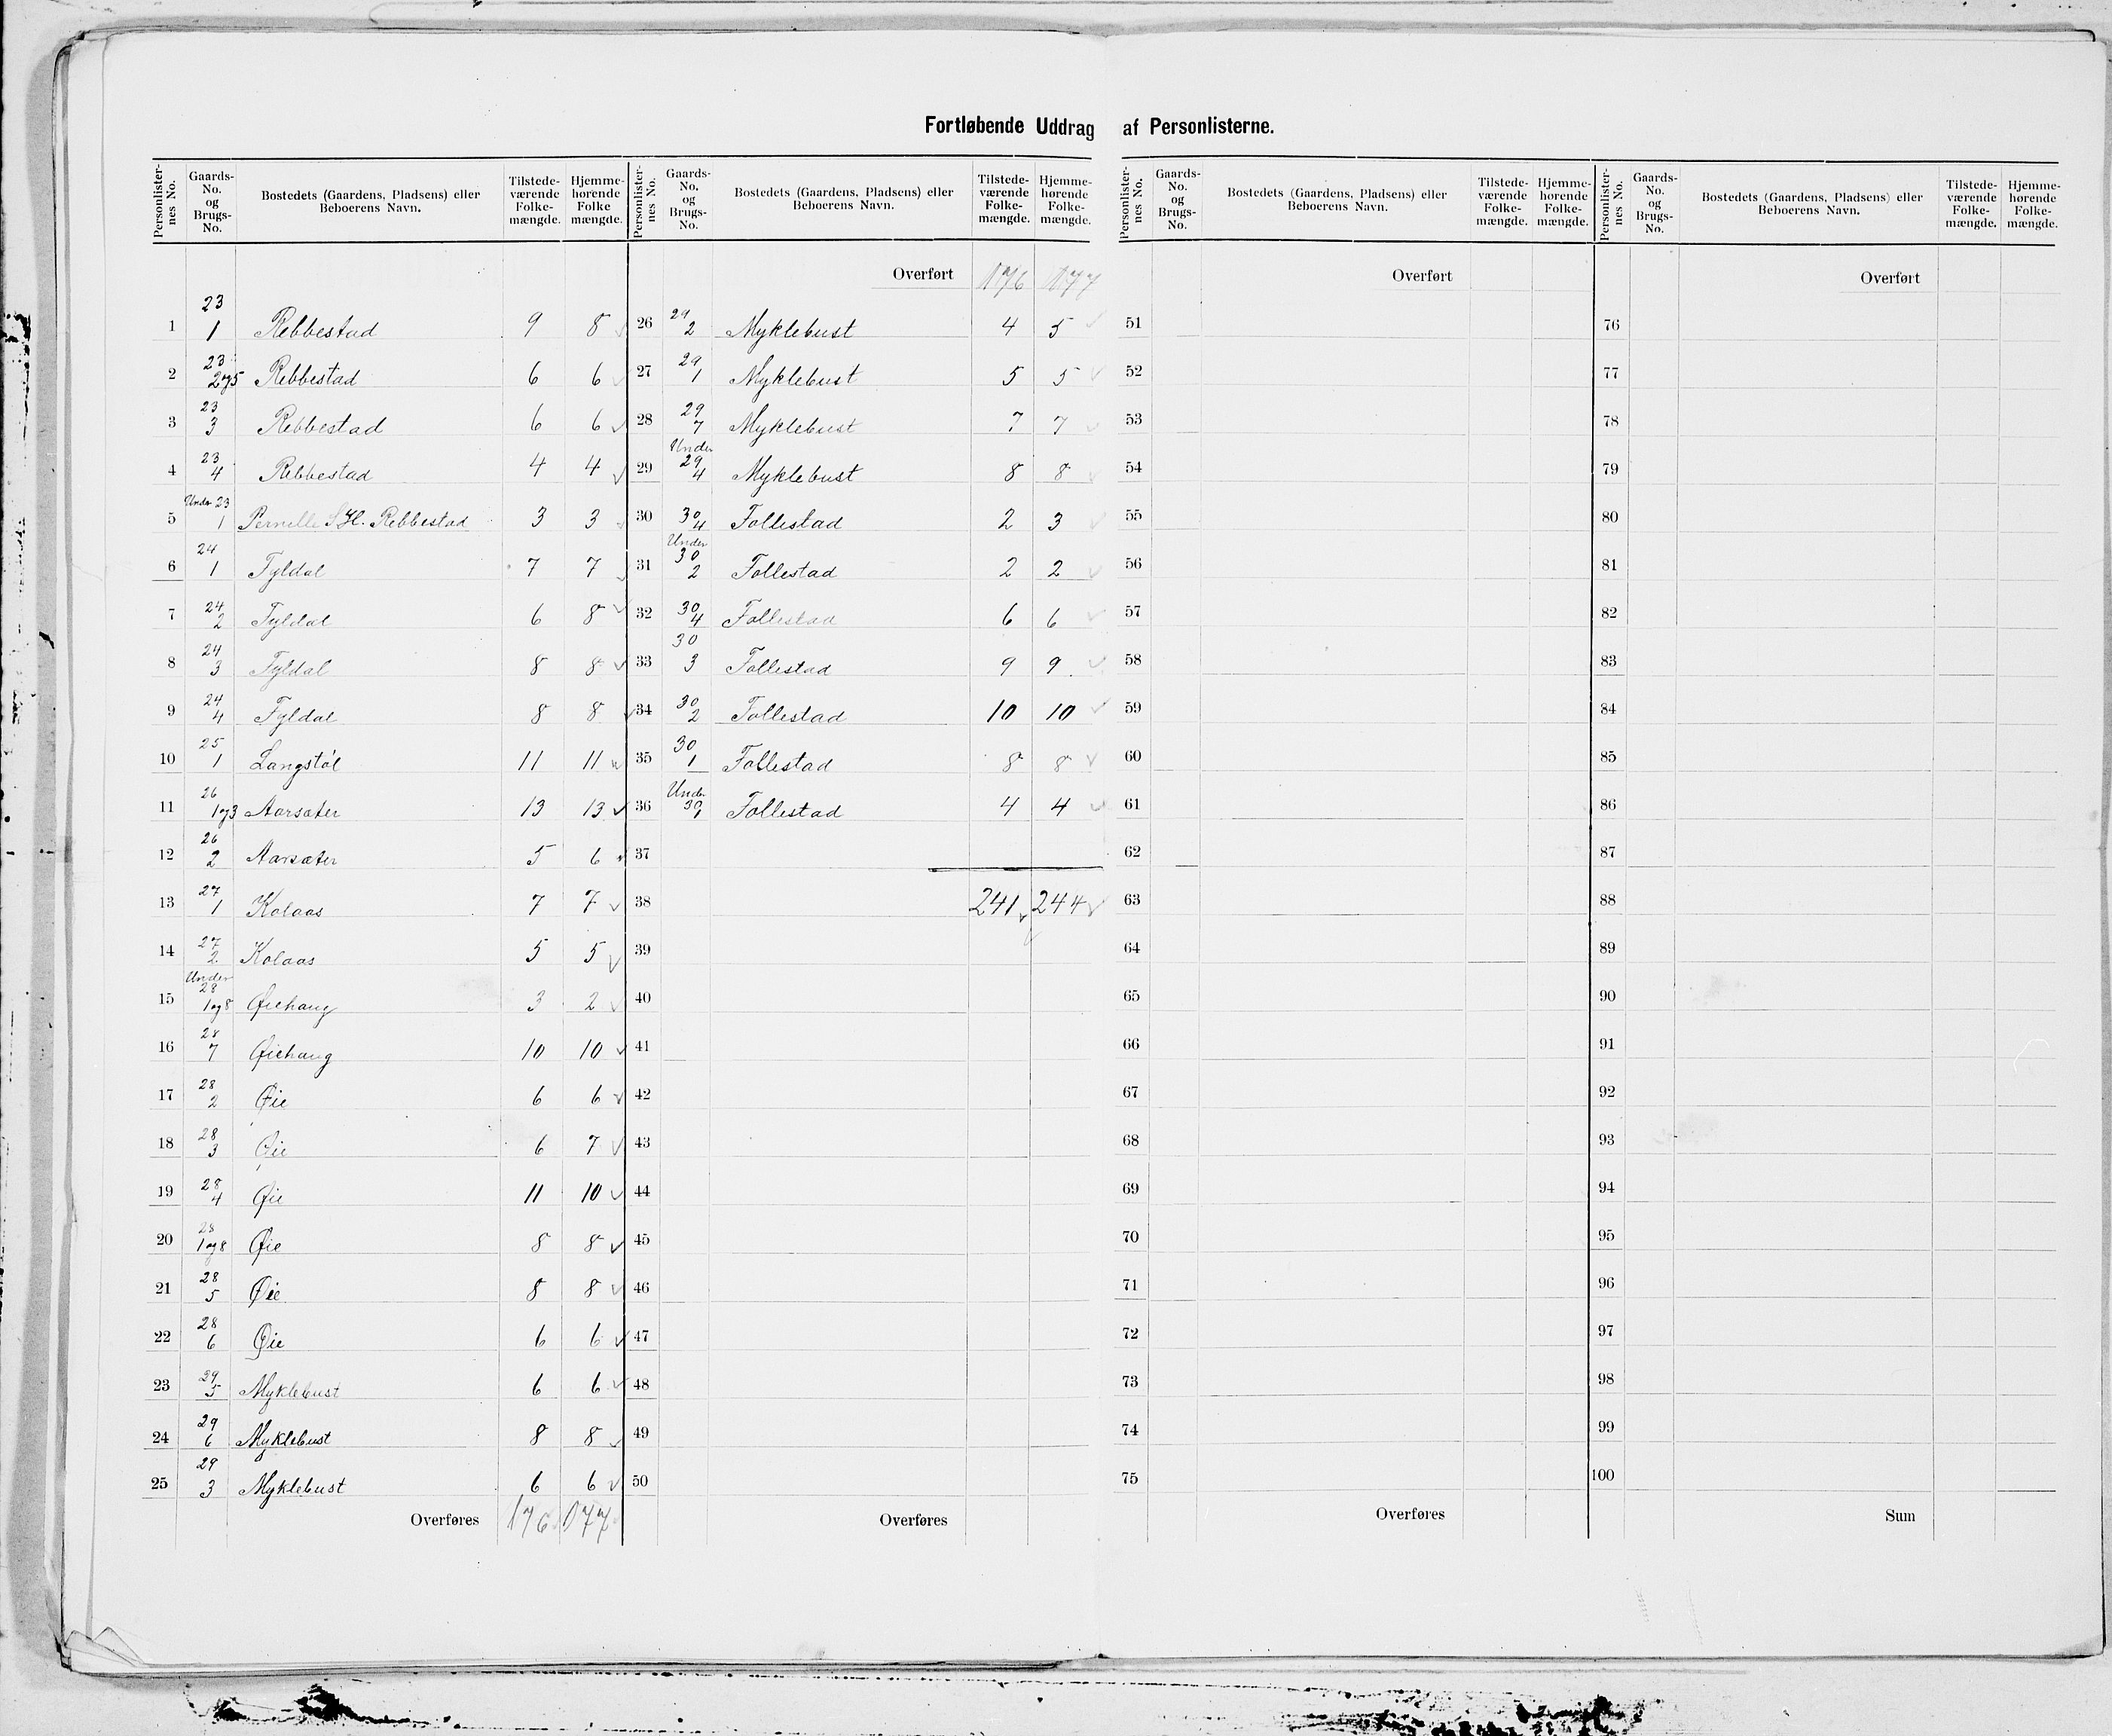 Fortløbende Uddrag af Personlisterne.
Personlisternes No. | Gaards-No. og Brugs-No. | Bostedets (Gaardens, Pladsens) eller Beboerens Navn. | Tilstedeværende Folkemængde. | Hjemmehørende Folkemængde.
1 | 23 1 | Rebbestad | 9 | 8
2 | 23 2 og 5 | Rebbestad | 6 | 6
3 | 23 3 | Rebbestad | 6 | 6
4 | 23 4 | Rebbestad | 4 | 4
5 | Under 23 1 | Pernille S H. Rebbestad | 3 | 3
6 | 24 1 | Fyldal | 7 | 7
7 | 24 2 | Fyldal | 6 | 8
8 | 24 3 | Fyldal | 8 | 8
9 | 24 4 | Fyldal | 8 | 8
10 | 25 1 | Langstøl | 11 | 11
11 | 26 1 og 3 | Aarsæter | 13 | 13
12 | 26 2 | Aarsæter | 5 | 6
13 | 27 1 | Kolaas | 7 | 7
14 | 27 2 | Kolaas | 5 | 5
15 | Under 28 1 og 8 | Øiehaug | 3 | 2
16 | 28 7 | Øiehaug | 10 | 10
17 | 28 2 | Øie | 6 | 6
18 | 28 3 | Øie | 6 | 7
19 | 28 4 | Øie | 11 | 10
20 | 28 1 og 8 | Øie | 8 | 8
21 | 28 5 | Øie | 8 | 8
22 | 28 6 | Øie | 6 | 6
23 | 29 5 | Myklebust | 6 | 6
24 | 29 6 | Myklebust | 8 | 8
25 | 29 3 | Myklebust | 6 | 6
Overføres | 176 | 177
Personlisternes No. | Gaards-No. og Brugs-No. | Bostedets (Gaardens, Pladsens) eller Beboerens Navn. | Tilstedeværende Folkemængde. | Hjemmehørende Folkemængde.
Overført | 176 | 177
26 | 29 2 | Myklebust | 4 | 5
27 | 29 1 | Myklebust | 5 | 5
28 | 29 7 | Myklebust | 7 | 7
29 | Under 29 4 | Myklebust | 8 | 8
30 | 30 4 | Follestad | 2 | 3
31 | Under 30 2 | Follestad | 2 | 2
32 | 30 4 | Follestad | 6 | 6
33 | 30 3 | Follestad | 9 | 9
34 | 30 2 | Follestad | 10 | 10
35 | 30 1 | Follestad | 8 | 8
36 | Under 30 1 | Follestad | 4 | 4
37
38 | 241 | 244
39
40
41
42
43
44
45
46
47
48
49
50
Overføres
Personlisternes No. | Gaards-No. og Brugs-No. | Bostedets (Gaardens, Pladsens) eller Beboerens Navn. | Tilstedeværende Folkemængde. | Hjemmehørende Folkemængde.
Overført
51
52
53
54
55
56
57
58
59
60
61
62
63
64
65
66
67
68
69
70
71
72
73
74
75
Overføres
Personlisternes No. | Gaards-No. og Brugs-No. | Bostedets (Gaardens, Pladsens) eller Beboerens Navn. | Tilstedeværende Folkemængde. | Hjemmehørende Folkemængde.
Overført
76
77
78
79
80
81
82
83
84
85
86
87
88
89
90
91
92
93
94
95
96
97
98
99
100
Sum